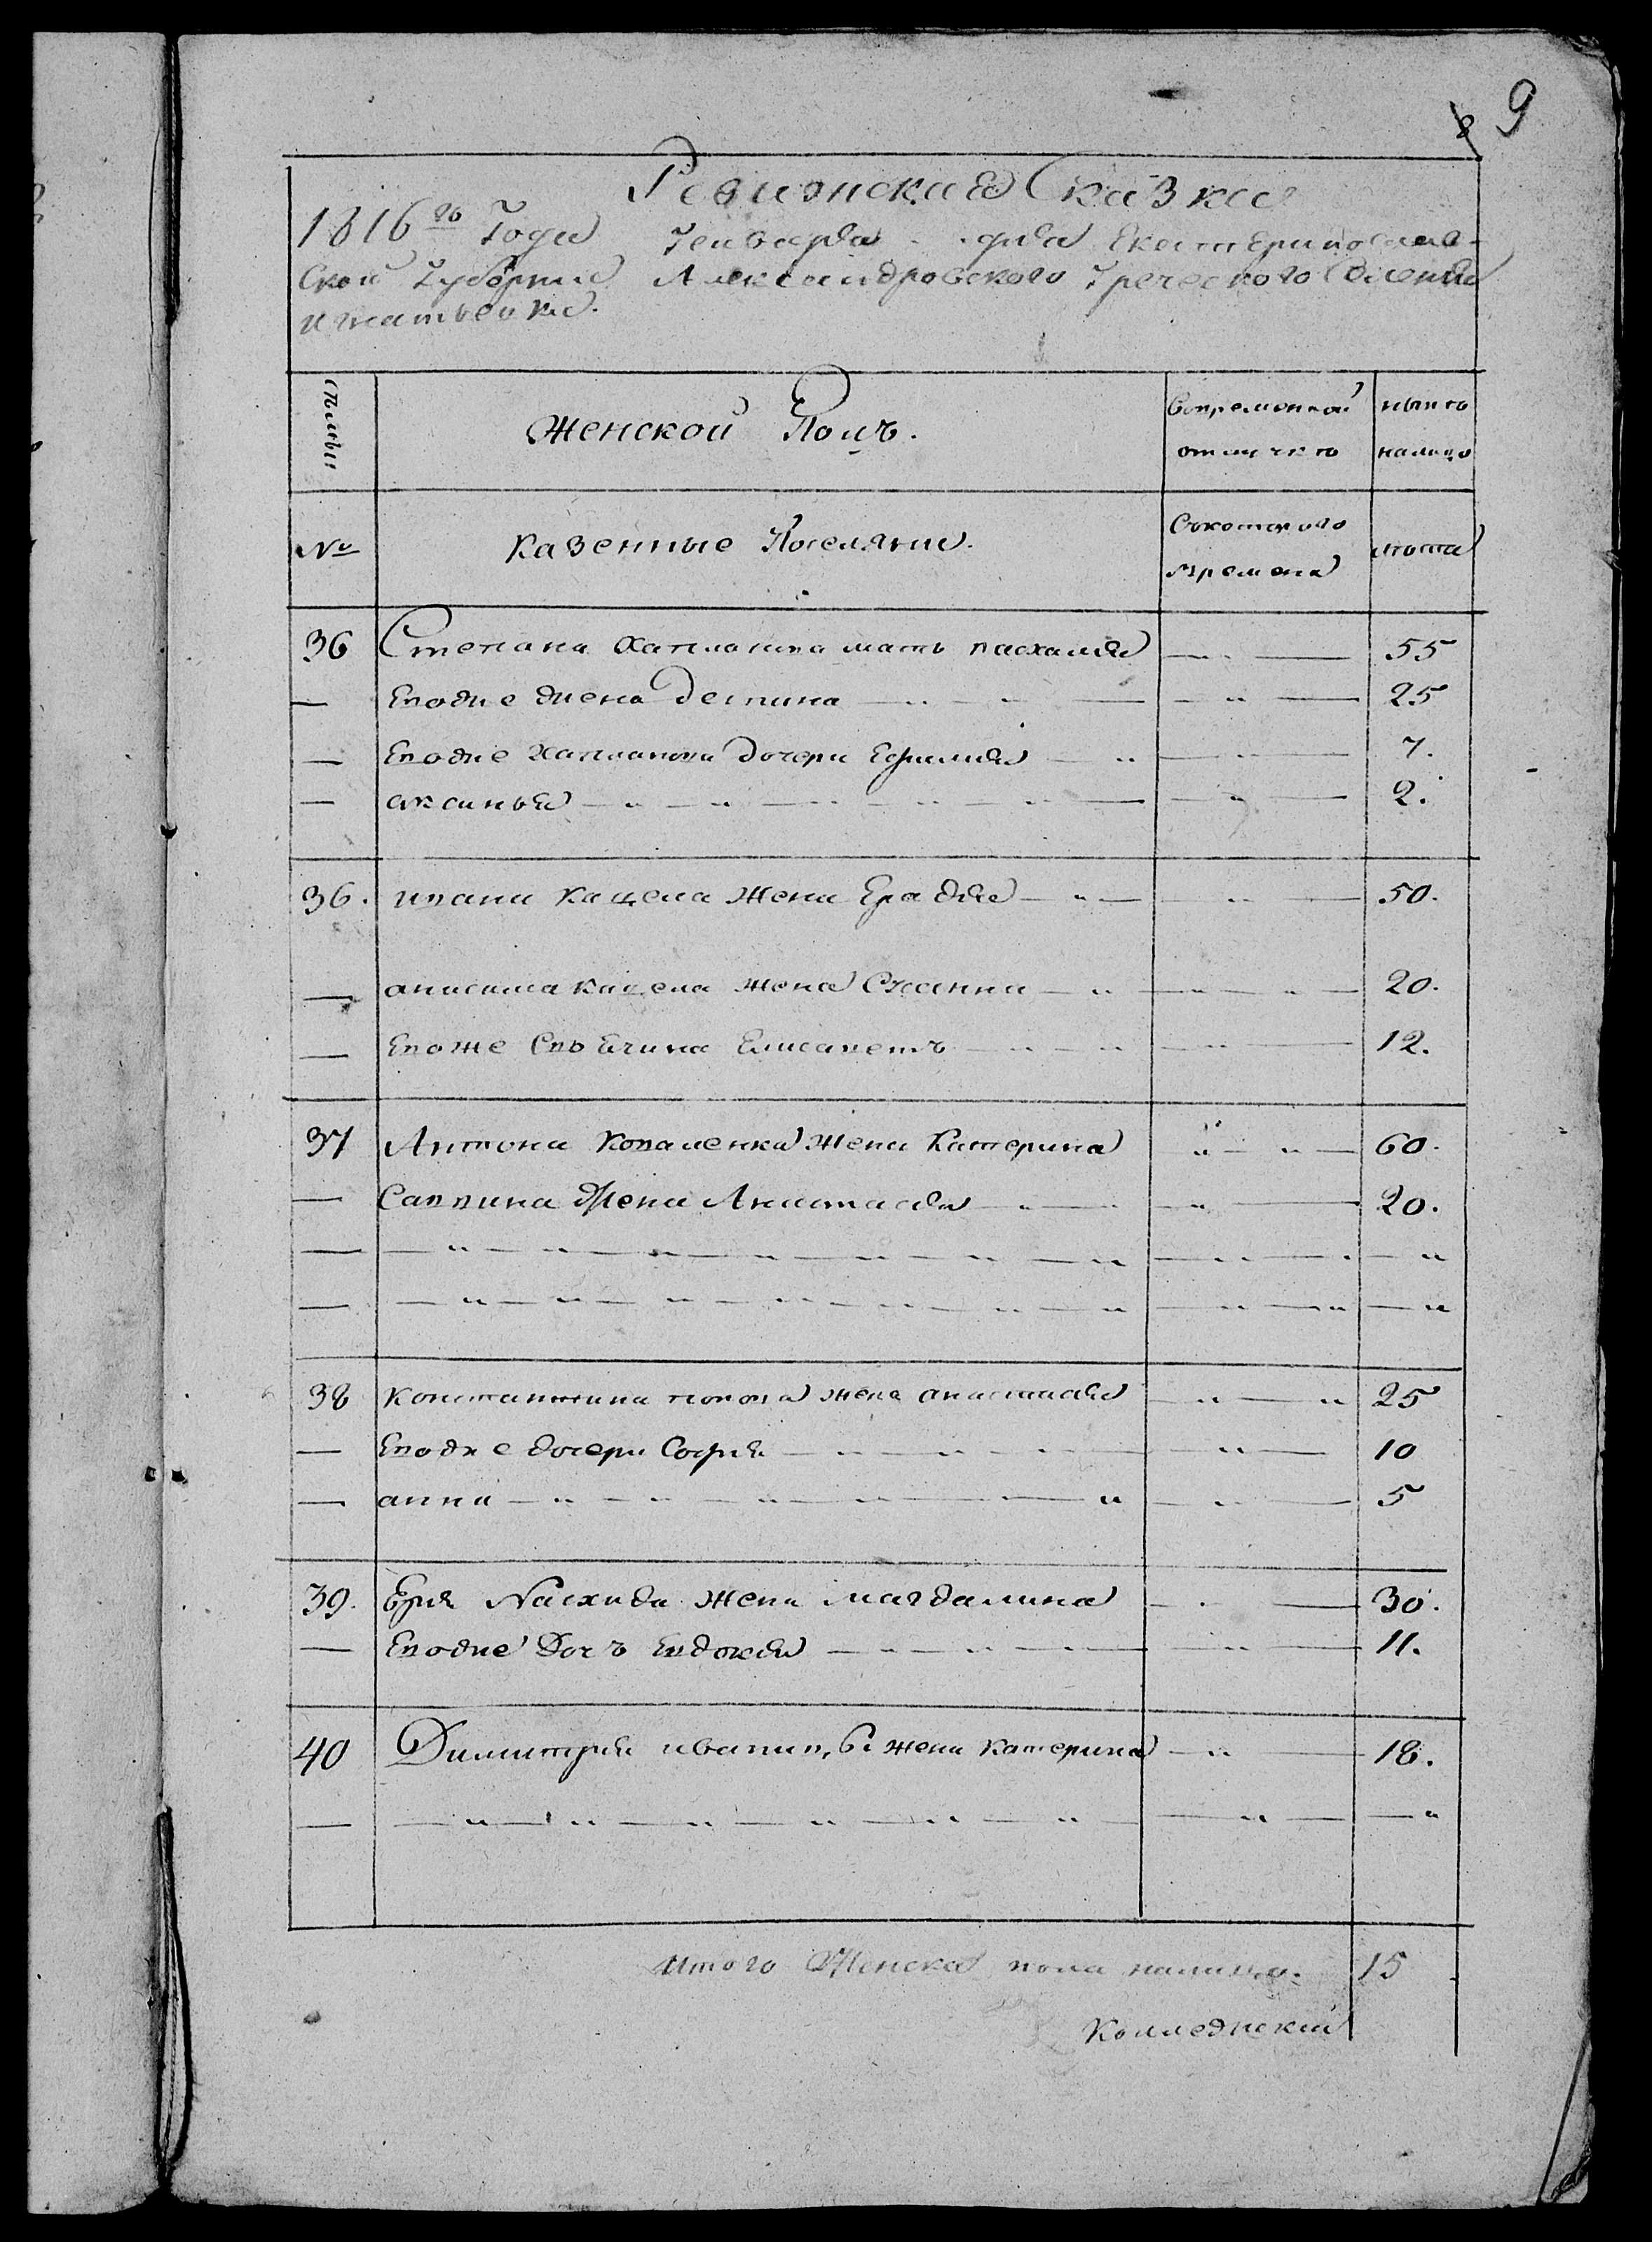 9
Ревижская Сказка
1816го Года Генваря дня Екатеринослав-
ской Губернии Александровского Греческого Селения
Игнатьевки.
Семьи
Женской Полъ.
Вовременной
отлучкѣ
нынѣ
налицо
№
Казенные Поселяне.
Скотораго
времена
лѣта
36 Степана Каплана мать пасхалия 55
— Еводне жена деспина 25
— Еводне Каплановы Дочери Ефимия 7.
— аксинья 2.
36. ивана Кацела жена 50.
— анисима Кацела жена Сусанна 20.
— Евоже Елисаветъ 12.
37 Антона Коваленка жена Катерина 60.
— Саввина Жена Анастасия 20.
38 Константина попова жена анастасия 25
— Еводне дочери София 10
— анна 5
39. жена магдалина 30.
— Еводне Дочъ Евдокия 11.
40 Димитрия жена катерина 18.
Итого Женска пола налицо. 15